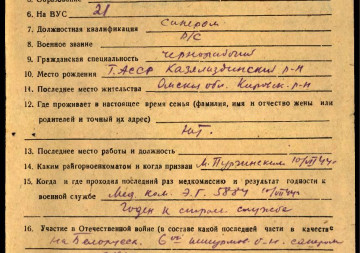 6. На ВУС 21
7. Должностная квалификация сапером
8. Военное звание р/с
9. Гражданская специальность чернорабочий
10. Место рождения Т.АССР р-н
11. Последнее место жительства Омская обл. Кировск. р-н
12. Где проживает в настоящее время семья (фамилия, имя и отчество жены или
родителей и точный их адрес)
Нет.
13. Последнее место работы и должность
14. Каким райгорвоенкоматом и когда призван
15. Когда и где проходил последний раз медкомиссию и результат годности к
военной службе Мед. ком. Э.Г.
Годен к строев. службе
16. Участие в Отечественной войне (в составе какой последней части в качестве
на Белорусск. 6ой штурмов. б-н. сапером